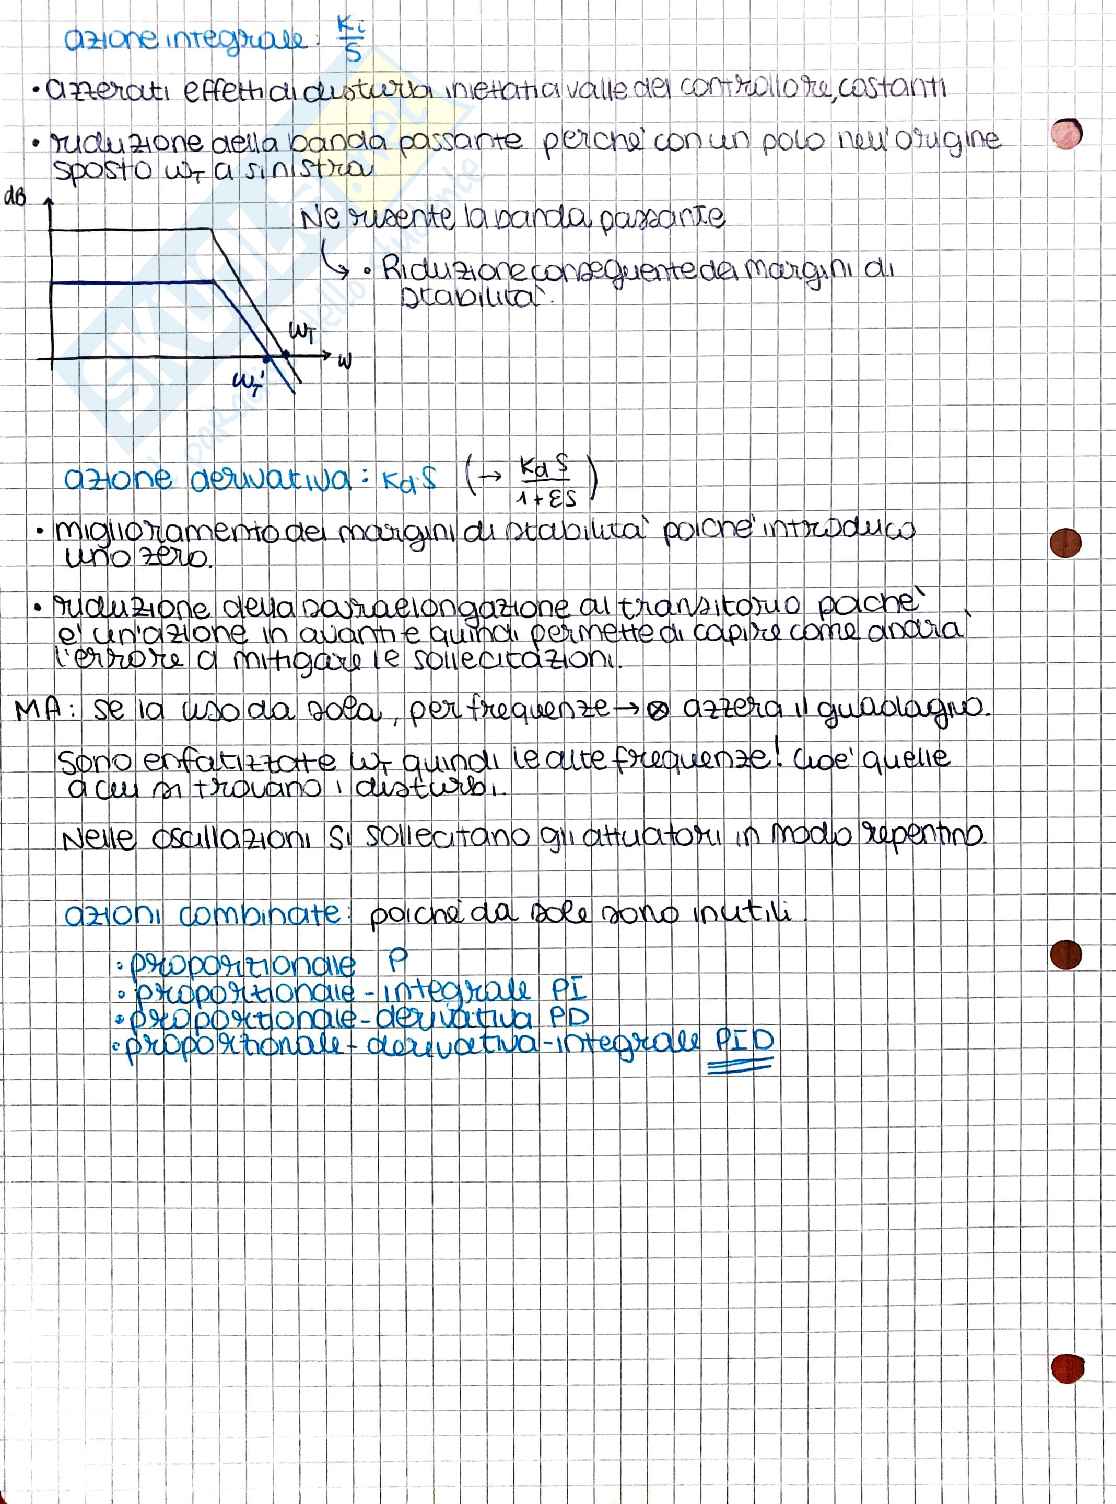 azione integrale: Ki/S
• azzerati effetti di disturbi iniettati a valle del controllore, costanti
• riduzione della banda passante perche' con un polo nell'origine
sposto ωT a sinistra
dB
Ne risente la banda passante
↳ • Riduzione conseguente dei margini di
stabilita'.
ωT
ω
ωT'
azione derivativa: Kd·S (→ Kd S / 1+εS)
• miglioramento dei margini di stabilita' poiche' introduco
uno zero.
• riduzione della sovraelongazione al transitorio poiche'
e' un'azione in avanti e quindi permette di capire come andra'
l'errore a mitigare le sollecitazioni.
MA: se la uso da sola, per frequenze → ∞ azzera il guadagno.
Sono enfatizzate ωT quindi le alte frequenze! Cioe' quelle
a cui si trovano i disturbi.
Nelle oscillazioni si sollecitano gli attuatori in modo repentino.
azioni combinate: poiche' da sole sono inutili.
• proporzionale P
• proporzionale-integrale PI
• proporzionale-derivativa PD
• proporzionale-derivativa-integrale PID
SKUOLA.net